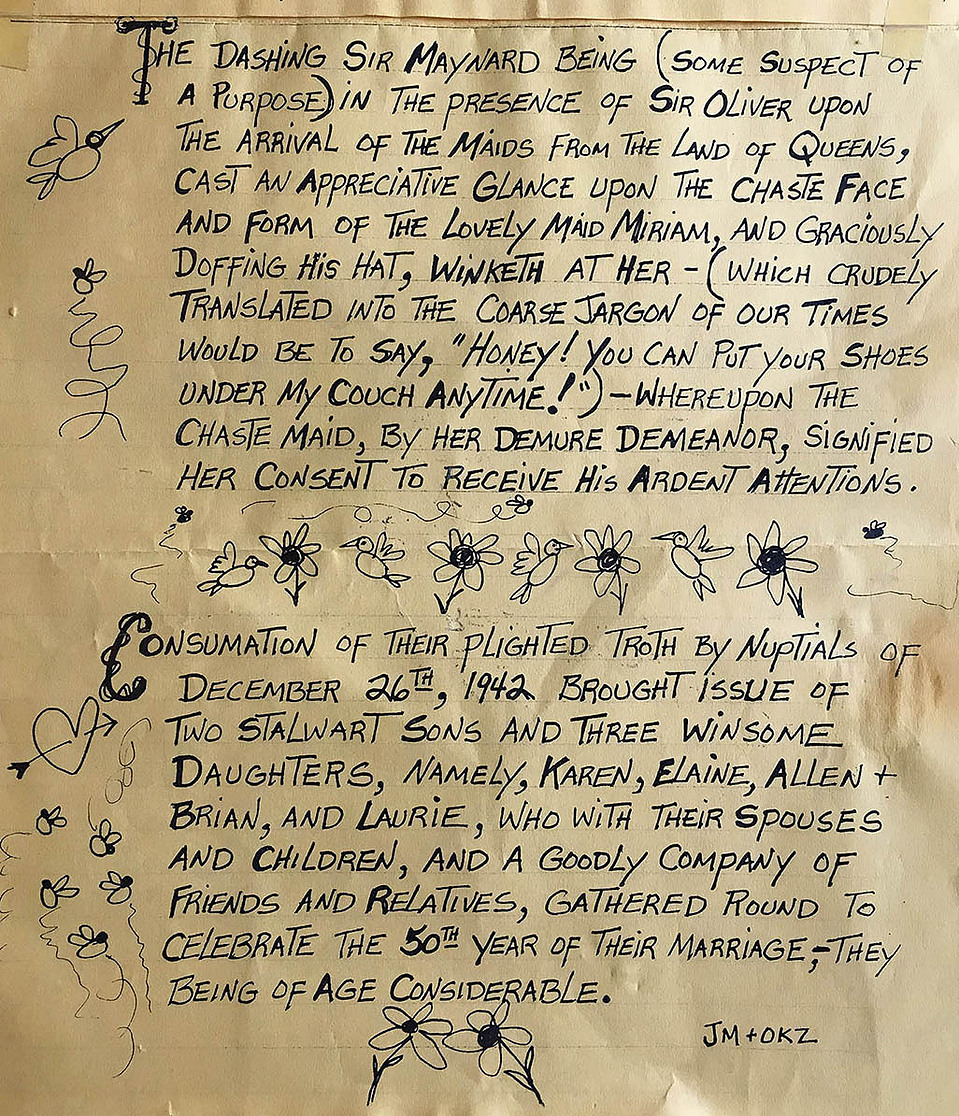 The Dashing Sir Maynard Being (some suspect of
a purpose) in the presence of Sir Oliver upon
the arrival of the Maids from the Land of Queens,
cast an appreciative glance upon the chaste face
and form of the lovely Maid Miriam, and graciously
doffing his hat, winketh at her - (which crudely
translated into the coarse jargon of our times
would be to say, "Honey! You can put your shoes
under my couch anytime!") - Whereupon the
chaste maid, by her demure demeanor, signified
her consent to receive his ardent attentions.
Consumation of their plighted troth by nuptials of
December 26TH, 1942 brought issue of
two stalwart sons and three winsome
daughters, namely, Karen, Elaine, Allen +
Brian, and Laurie, who with their spouses
and children, and a goodly company of
friends and relatives, gathered round to
celebrate the 50TH year of their marriage, - they
being of age considerable.
JM + OKZ